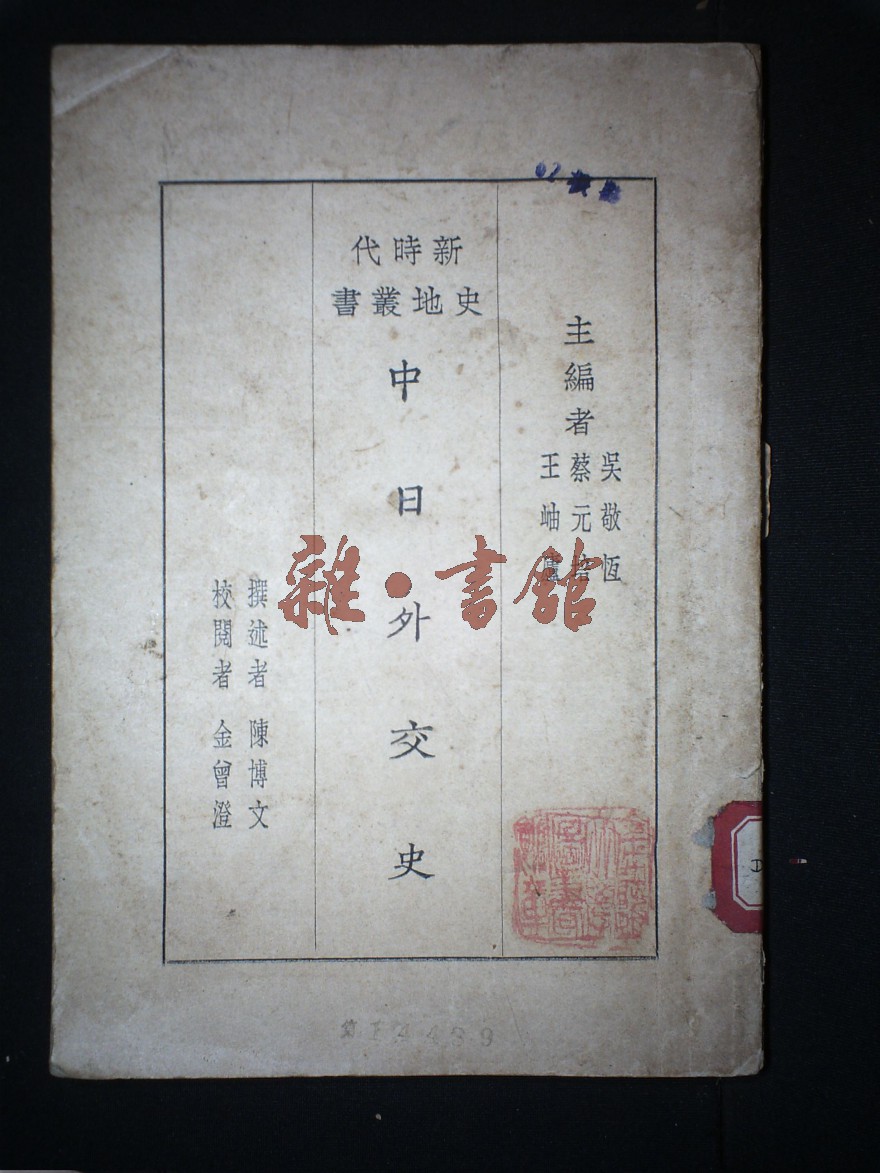 主編者
吳敬恆
蔡元培
王岫廬
新時代
史地叢書
中日外交史
撰述者 陳博文
校閱者 金曾澄
雜·書館
第14439